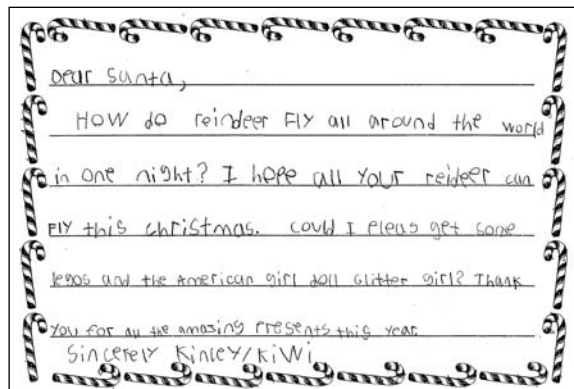 Dear Santa,
How do reindeer Fly all around the world
in one night? I hope all your reideer can
Fly this christmas. Could I pleas get some
legos and the American girl doll Glitter girl? Thank
You for all the amazing Presents this year.
Sincerely Kinley/Kiwi